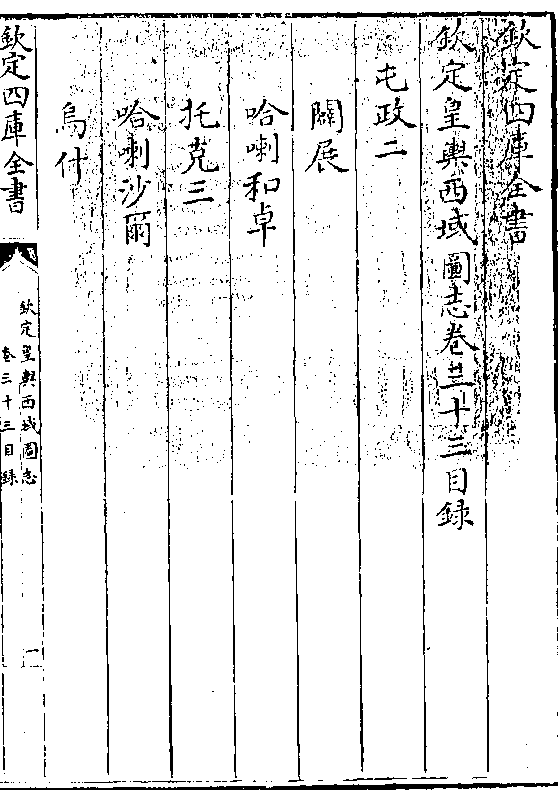 欽定四庫全書
欽定皇輿西域圖志卷三十三目録
屯政二
闢展
哈喇和卓
托克三
哈喇沙爾
烏什
欽定四庫全書
欽定皇輿西域圖志
卷三十三目録
一